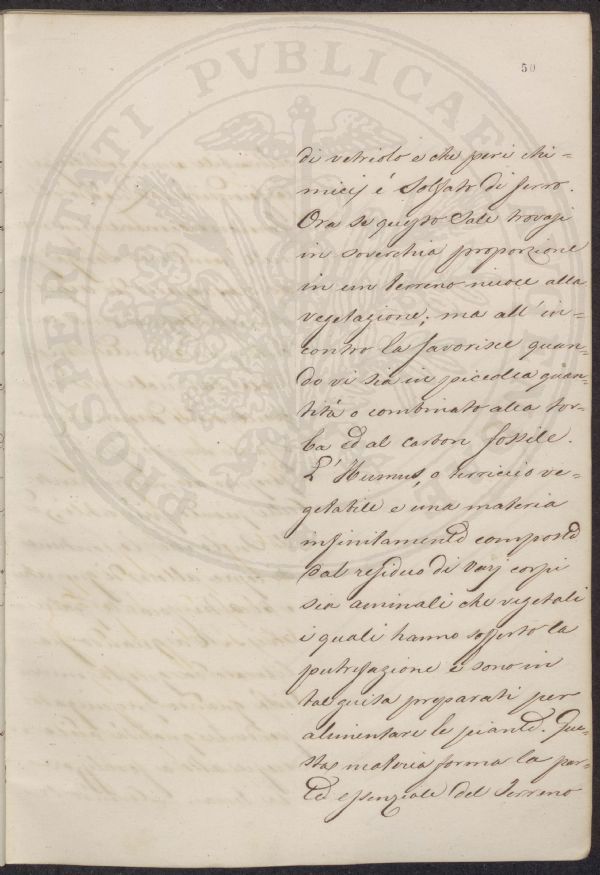 50
PROSPERITATI PVBLICAE
di vetriolo e che peri chi=
micij é Solfato di ferro.
Ora se questo Sale trovasi
in soverchia proporzione
in un terreno nuoce alla
vegetazione; ma all' in=
contro la favorisce quan=
do vi sia in piccolla quan=
titá o combinato alla tor=
ba ed al carbon fossile.
L' Humus, o terriccio ve=
getabile e una materia
infinitamente composta
dal residuo di varj corpi
sia aminali che vegetali
i quali hanno sofferto la
putrefazione e sono in
tal guisa preparati per
alimentare le piante. Que=
sta materia forma la par=
te essenziale del Terreno